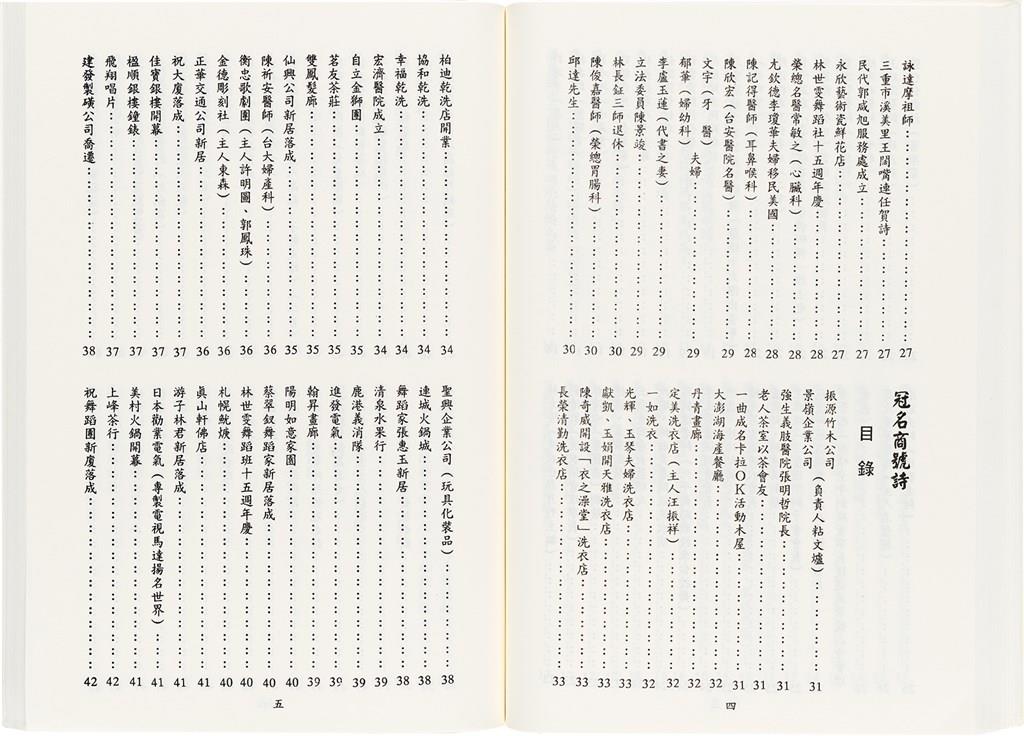 詠達摩祖師………27
三重市溪美里王闊嘴連任賀詩………27
民代郭咸旭服務處成立………27
永欣藝術瓷鮮花店………27
林世雯舞蹈社十五週年慶………28
榮總名醫常敏之（心臟科）………28
尢欽德李瓊華夫婦移民美國………28
陳記得醫師（耳鼻喉科）………28
陳欣宏（台安醫院名醫）………29
文宇（牙　醫）
郁華（婦幼科）　夫婦………29
李盧玉蓮（代書之妻）………29
立法委員陳景峻………29
林長鉦三師退休………30
陳俊嘉醫師（榮總胃腸科）………30
邱達先生………30
冠名商號詩
目　錄
振源竹木公司
景嶺企業公司　（負責人粘文爐）………31
強生義肢醫院張明哲院長………31
老人茶室以茶會友………31
一曲成名卡拉OK活動木屋………31
大澎湖海產餐廳………32
丹青畫廊………32
定美洗衣店（主人汪振祥）………32
一如洗衣………32
光輝、玉琴夫婦洗衣店………33
獻凱、玉娟開天雅洗衣店………33
陳奇威開設「衣之澡堂」洗衣店………33
長榮清勤洗衣店………33
四
柏迪乾洗店開業………34
協和乾洗………34
幸福乾洗………34
宏濟醫院成立………34
自立金獅團………35
茗友茶莊………35
雙鳳髮廊………35
仙興公司新居落成………35
陳祈安醫師（台大婦產科）………36
衡忠歌劇團（主人許明圖、郭鳳珠）………36
金德彫刻社（主人東森）………36
正華交通公司新居………36
祝大廈落成………37
佳寶銀樓開幕………37
楹順銀樓鐘錶………37
飛翔唱片………37
建發製磺公司喬遷………38
聖興企業公司（玩具化裝品）………38
連城火鍋城………38
舞蹈家張惠玉新居………38
清泉水果行………39
鹿港義消隊………39
進發電氣………39
翰昇畫廊………39
陽明如意家園………40
蔡翠釵舞蹈家新居落成………40
林世雯舞蹈班十五週年慶………40
札幌魷𩵚………40
眞山軒佛店………41
游子林君新居落成………41
日本勸業電氣（專製電視馬達揚名世界）………41
美村火鍋開幕………41
上峰茶行………42
祝舞蹈團新廈落成………42
五